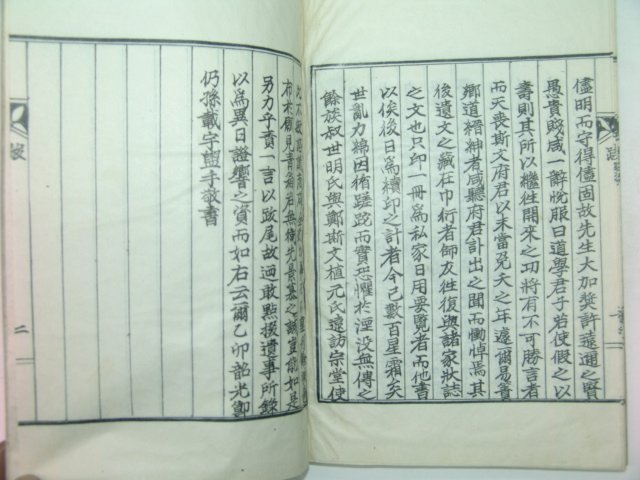 儘明而守得儘固故先生大加奬許遠邇之賢
愚貴賤咸一辭悅服曰道學君子若使假之以
壽則其所以繼往開來之功將有不可勝言者
而天喪斯文府君以未當兌夭之年遽爾易簀
鄕道縉紳者咸聽府君計出之聞而慟悼焉其
後遺文之藏在巾衍者師友往復與諸家狀誌
之文也只印一冊爲私家日用要覽者而他書
以俟後日爲續印之計者今已數百星霜矣
世亂力綿因循蹉跎而實恐懼於湮沒無傳之
餘族叔世明氏與鄭斯文植元氏遠訪宗堂使
以不敏
另力乎賁一言以跋尾故迺敢點掇遺事所錄
以爲異日證響之資而如右云爾乙卯韶光節
仍孫載宇盥手敬書
二